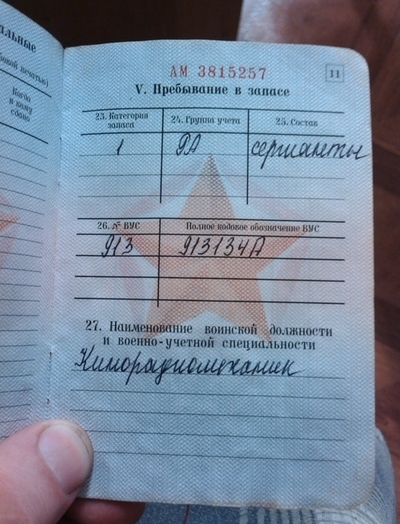 альные
бовой печатью)
Когда
и кому
сдано
АМ 3815257
11
V. Пребывание в запасе
23. Категория запаса
24. Группа учета
25. Состав
1
РА
сержанты
26. № ВУС
Полное кодовое обозначение ВУС
913
913134А
27. Наименование воинской должности
и военно-учетной специальности
Кинорадиомеханик